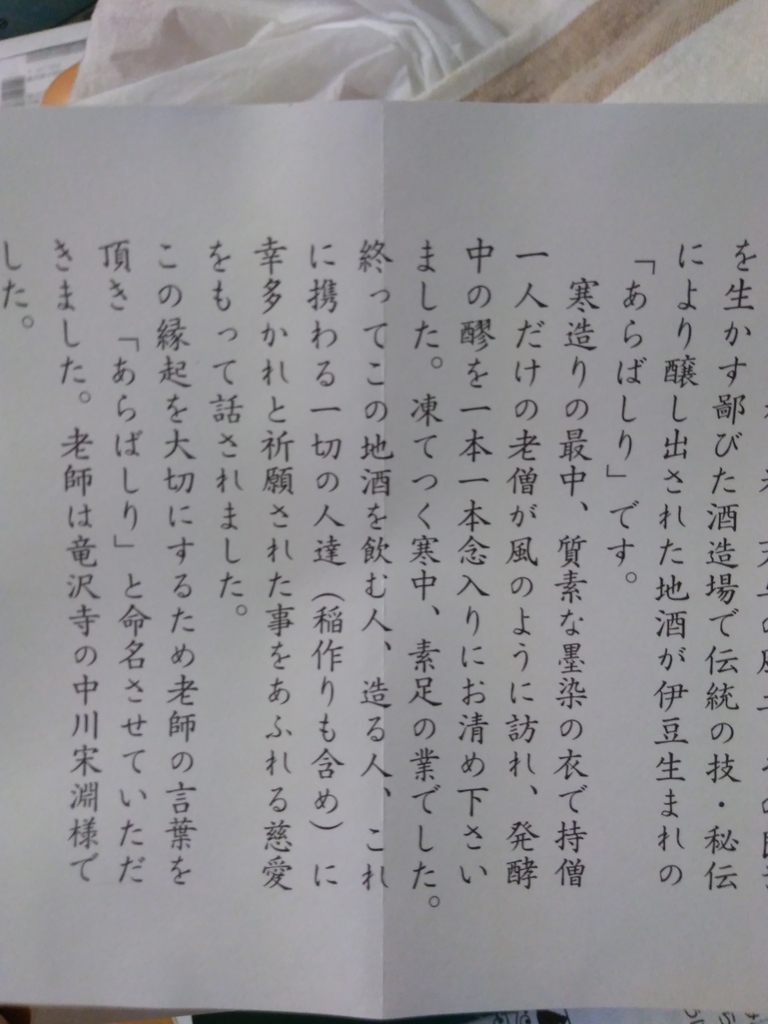 を生かす鄙びた酒造場で伝統の技・秘伝
により醸し出された地酒が伊豆生まれの
「あらばしり」です。
寒造りの最中、質素な墨染の衣で持僧
一人だけの老僧が風のように訪れ、発酵
中の醪を一本一本念入りにお清め下さい
ました。凍てつく寒中、素足の業でした。
終ってこの地酒を飲む人、造る人、これ
に携わる一切の人達(稲作りも含め)に
幸多かれと祈願された事をあふれる慈愛
をもって話されました。
この縁起を大切にするため老師の言葉を
頂き「あらばしり」と命名させていただ
きました。老師は竜沢寺の中川宋淵様で
した。